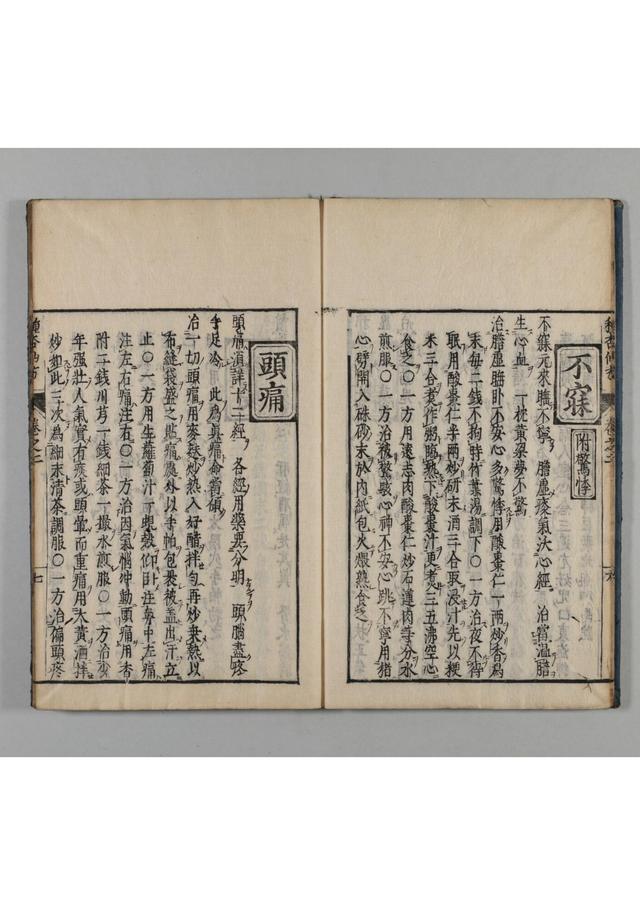 不寐
附驚悸
不寐元來臥不寧 膽虛痰氣決心經 治當溫膽
生心血 一枕黃粱夢不驚
治膽虛臥卧不安心多驚悸用酸棗仁一兩炒香爲
末每二錢不拘時竹葉湯調下〇一方治夜不得
眠用酸棗仁半兩炒研末酒三合取浸汁先以粳
米三合煮作粥臨熟下酸棗汁更煮三五沸空心
食之〇一方用遠志肉酸棗仁炒石蓮肉等分水
煎服〇一方治被驚駭心神不安心跳不寧用猪
心劈開入硃砂末於內紙包火煨熟食之
頭痛
頭痛須詳十二經 各經用藥要分明 頭腦盡疼
手足冷 此爲眞痛命當傾
治一切頭痛用麥麩炒熱入好醋拌勻再炒乗熱以
布縫袋盛之貼痛處外以手帕包裹被盖出汗立
止〇一方用生蘿蔔汁一蜆殼仰卧注每中左痛
注左右痛注右〇一方治因氣惱冲動頭痛用香
附二錢川芎一錢細茶一撮水煎服〇一方治少
年強壯人氣實有痰或頭暈而重痛用大黃酒拌
炒如此三次爲細末清茶調服〇一方治偏頭疼
卷之二
七